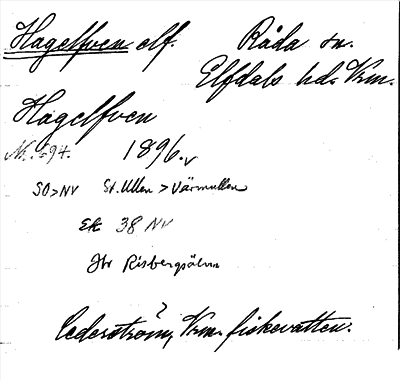 Hagelfven elf. Råda sn.
Elfdals hd. Vrm.
Hagelfven
1896.
SO>NV St. Ullen > Värmullen
Ek 38 NV
Jfr Risbergsälven
Cederström, Vrm. fiskevatten.